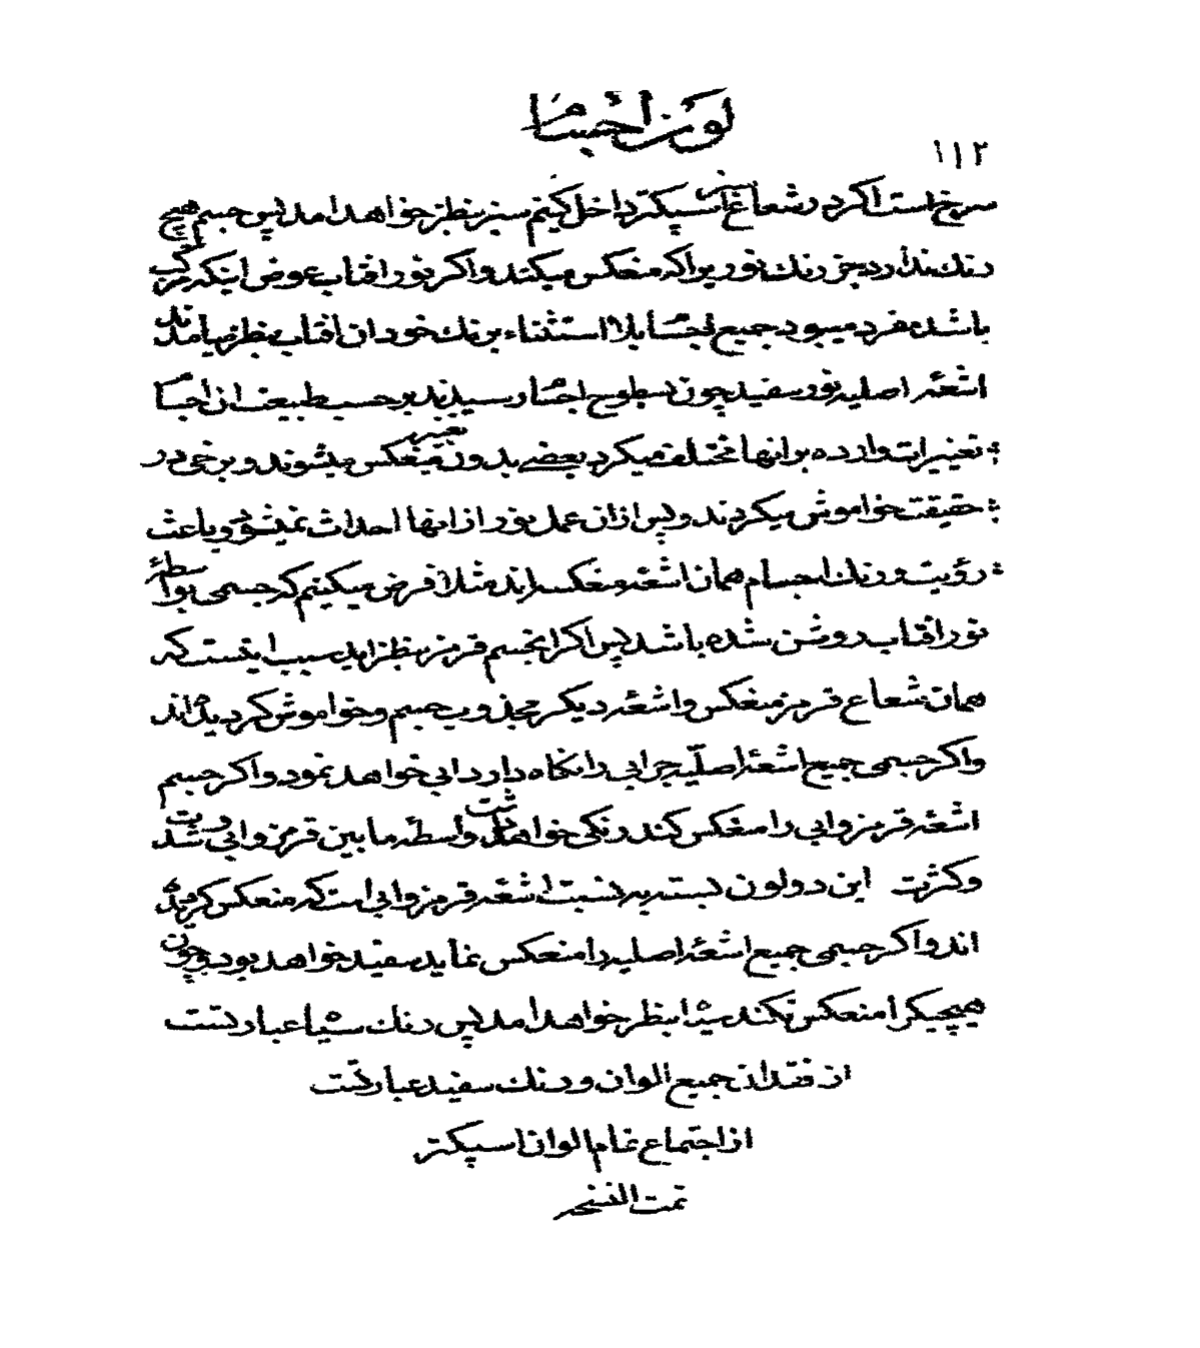 لون اجسام
۱۱۲
سرخ است اکر در شعاع اسپکتر داخل کنیم سبز بنظر خواهد امد پس جسم هیچ
رنك ندارد بجز رنك نوریراکه منعکس میکند و اکر نور افتاب عوض اینکه مرکب
باشد مفرد میبود جمیع اجسا بلا استثناء برنك خود ان افتاب بنظر میامدند
اشعهٔ اصلیه نور سفید چون بسطوح اجسا رسیدند بر حسب طبیعت ان اجسا
تغییرات وارده بر انها مختلف میکردد بعضی بدون تغییر منعکس میشوند و برخی در
حقیقت خواموش میکردند و پس ازان عمل نور از انها احداث نمیشود و باعث
رؤیت و رنك اجسام همان اشعهٔ منعکسه اند مثلا فرض میکنیم که جسمی بواسطهٔ
نور افتاب روشن شده باشد پس اکر انجسم قرمز بنظر اید سبب اینست که
همان شعاع قرمز منعکس و اشعهٔ دیکر مجذوب جسم و خواموش کردیده اند
و اکر جسمی جمیع اشعهٔ اصلیه جز ابی را نکاه دارد ابی خواهد نمود و اکر جسم
اشعهٔ قرمز و ابی را منعکس کند رنکی خواهد داشت واسطه ما بین قرمز و ابی شدت
و کثرت این دو لون بسته به نسبت اشعهٔ قرمز و ابی است که منعکس کردیده
اند و اکر جسمی جمیع اشعهٔ اصلیه را منعکس نماید سفید خواهد بود و چون
هیچیك را منعکس نکند سیاه بنظر خواهد امد پس رنك سیاه عبارتست
از فقدان جمیع الوان و رنك سفید عبارتست
از اجتماع تمام الوان اسپکتر
تمت النسخه